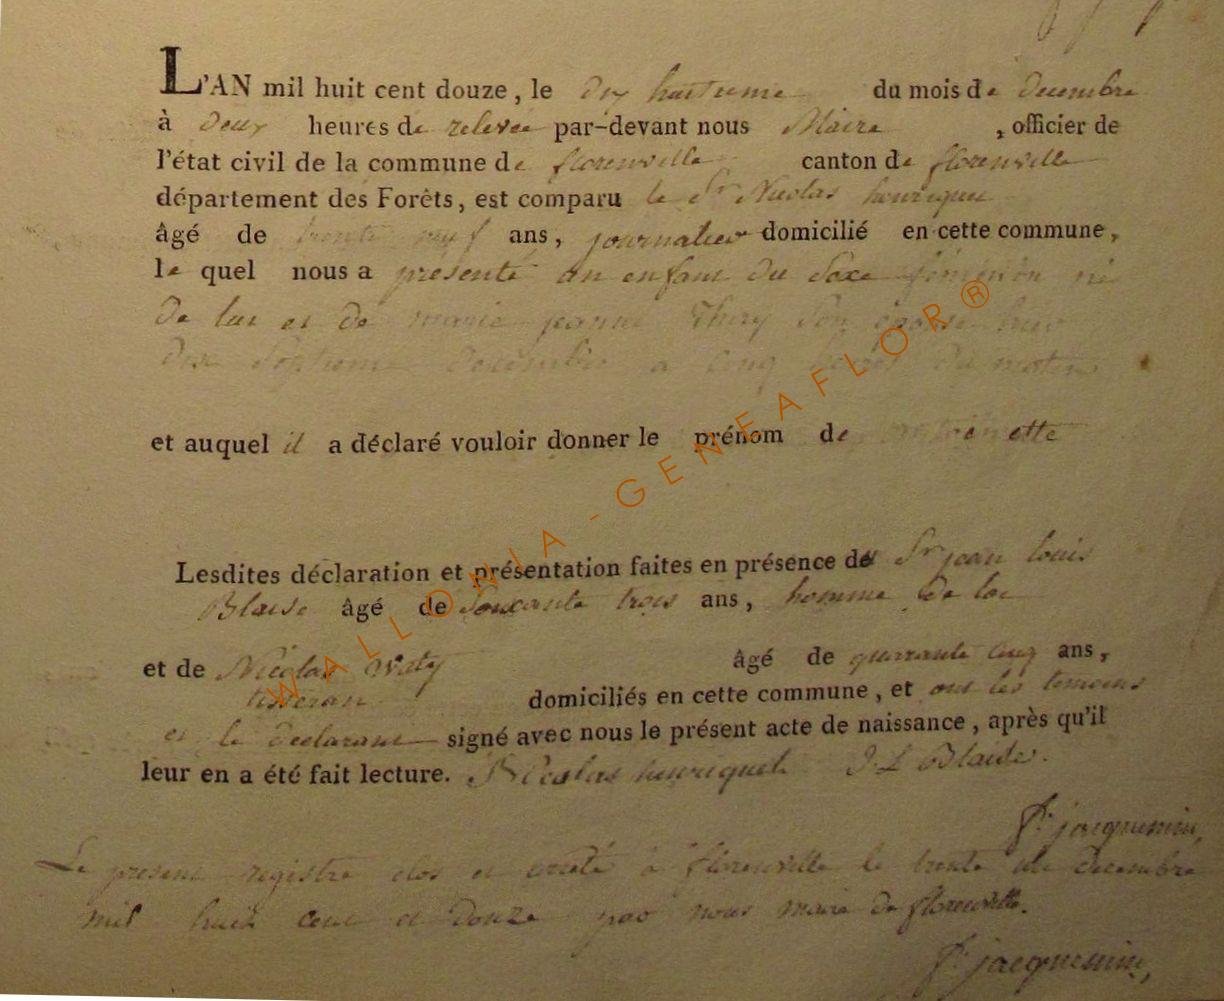 L'AN mil huit cent douze, le dix huitieme du mois de decembre
à deux heures de relevée par-devant nous Maire, officier de
l'état civil de la commune de florenville canton de florenville
département des Forêts, est comparu le Sr Nicolas henriquet
âgé de trente neuf ans, journalier domicilié en cette commune,
le quel nous a présenté un enfant du Sexe féminin né
de lui et de marie jeanne Thiry Son épouse hier
dix Septieme decembre a cinq heures du matin
et auquel il a déclaré vouloir donner le prénom de ette
Lesdites déclaration et présentation faites en présence de Sr jean louis
Blaise âgé de Soixante trois ans, homme de loi
et de Nicolas Waty âgé de quarante cinq ans,
tisseran domiciliés en cette commune, et ont les temoins
et le declarant signé avec nous le présent acte de naissance, après qu'il
leur en a été fait lecture. Nicolas henriquet J. L Blaise.
jacquemin,
Le present registre clos et arreté à florenville le trente un decembre
mil huit cent et douze par nous maire de florenville.
jacquemin,
WALLONIA-GENEAFLOR®